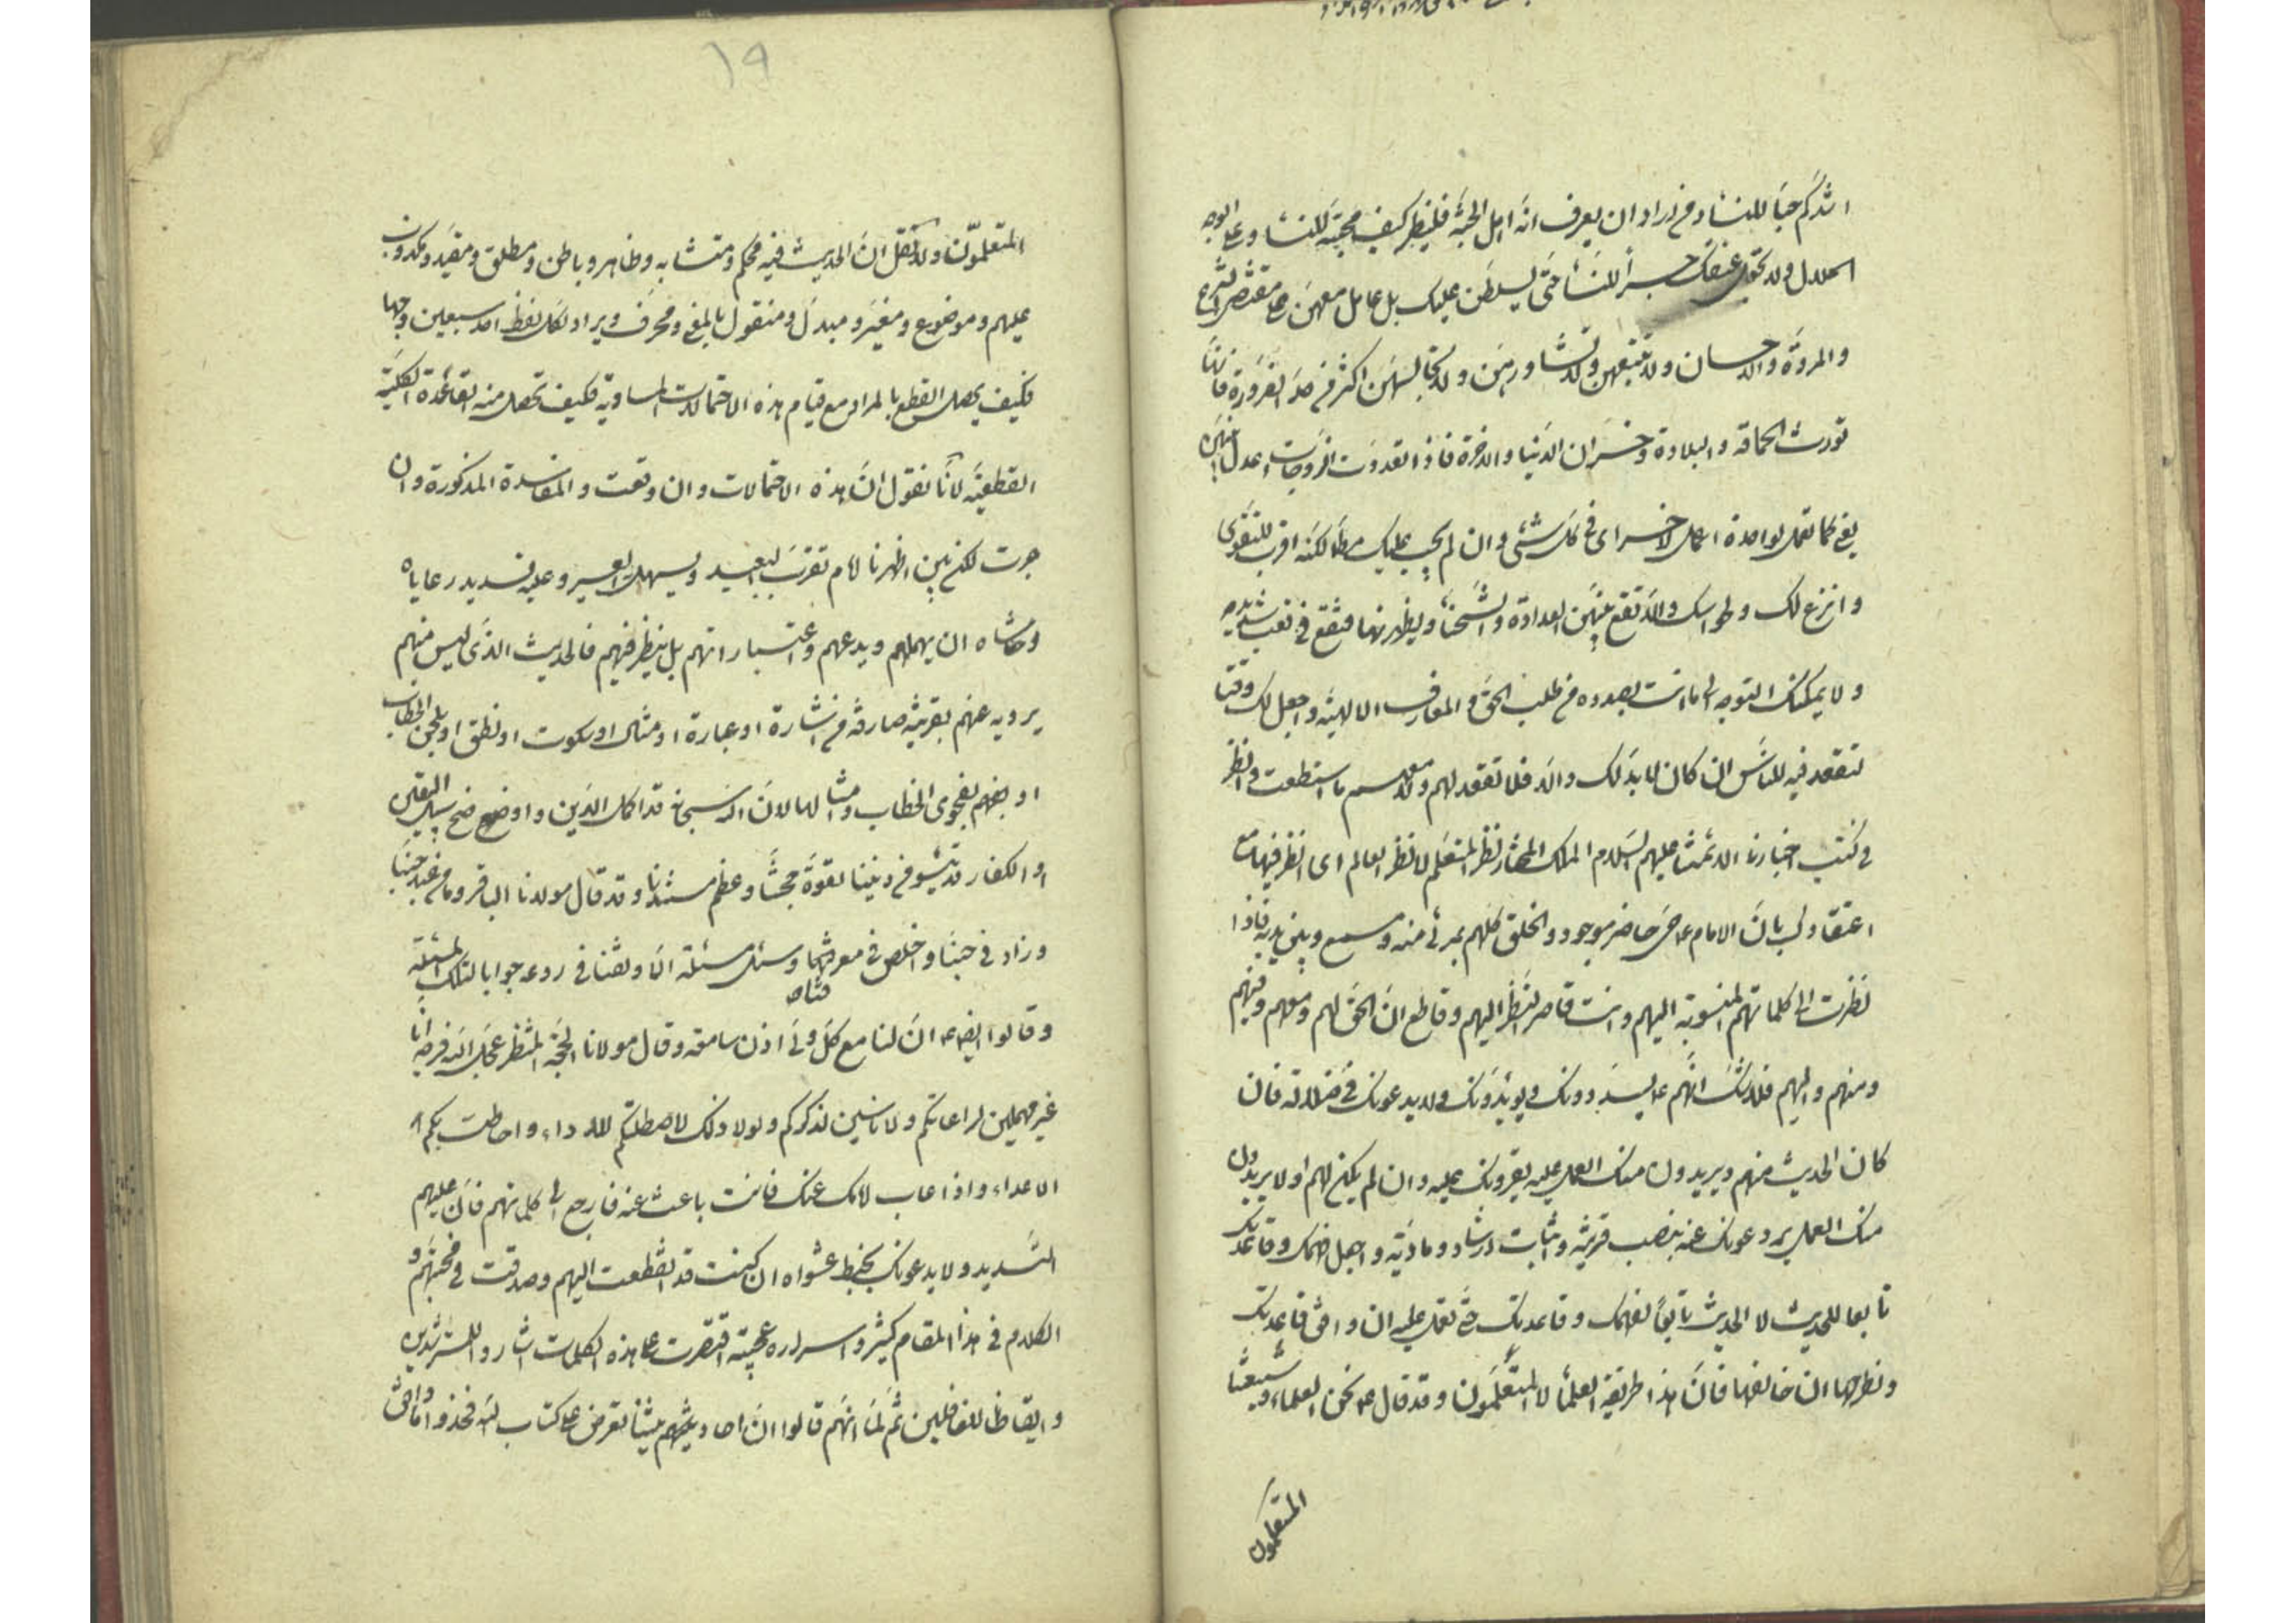 اشدكم حبا للنساء فمن اراد ان يعرف انه اهل المحبة فلينظر كيف محبته للنساء وعلى الوجه
الحلال ولا تجعل عنقك جسرا للنساء حتى يسلطن عليك بل عامل معهن على مقتضى الشرع
والمروة والاحسان ولا تتبعهن ولا تشاورهن ولا تجالسهن اكثر من حد الضرورة فانها
تورث الحماقة والبلادة وخسران الدنيا والاخرة فاذا تعددت الزوجات اعدل بينهن
يعني كما تعمل لواحدة اعمل لاخرى في كل شيء وان لم يجب عليك مطلقا لكنه اقرب للتقوى
وانزع لك ولحواسك والا تقع بينهن العداوة والشحناء ويظهرنها فتقع في تعب شديد
ولا يمكنك التوجه الى ما انت بصدده من طلب الحق والمعارف الالهية واجعل لك وقتا
لتقعد فيه للناس ان كان لا بد لك والا فلا تقعد لهم وقتا ما استطعت وانظر
في كتب اخبارنا الائمتنا عليهم السلام الملك المختار نظر المتعلم لا نظر العالم اى انظر فيها مع
اعتقادك بان الامام ع حي حاضر موجود والخلق كلهم بمرئ منه ومسمع وبين يديه فاذا
نظرت الى كلماتهم المنسوبة اليهم وانت قاصر النظر اليهم وقاطع ان الحق لهم ومعهم وفيهم
ومنهم واليهم فلا شك انهم ع يسددونك ويؤيدونك ولا يدعونك في ضلالة فان
كان الحديث منهم ويريدون منك العمل عليه يقرونك عليه وان لم يكن لهم او لا يريدون
منك العمل يردعونك عنه بنصب قرينة واثبات ارشاد وهادية واجعل فهمك وقاعدتك
تابعا للحديث لا الحديث تابعا لفهمك وقاعدتك حتى تعمل عليه ان وافق قاعدتك
وتطرحها ان خالفها فان هذا طريقة العلماء لا المتعلمون وقد قال ع نحن العلماء وشيعتنا
المتعلمون
١٩
المتعلمون ولا تقل ان الحديث فيه محكم ومتشابه وظاهر وباطن ومطلق ومقيد ومكذوب
عليهم وموضوع ومغير ومبدل ومنقول بالمعنى ومحرف ويراد لكل لفظ احد سبعين وجها
فكيف يحصل القطع بالمراد مع قيام هذه الاحتمالات المساوية فكيف تحصل منه القاعدة الكلية
القطعية لانا نقول ان هذه الاحتمالات وان وقعت والمفاسدة المذكورة وان
جرت لكن بين اظهرنا امام تقرب البعيد ويسهل العسير وعليه تسديد رعاياه
وحاشاه ان يهملهم ويدعهم واعتباراتهم بل ينظر فيهم فالحديث الذي ليس منهم
يرويه عنهم بقرينة صارفة من اشارة او عبارة او مثال او سكوت او نطق او بلحن الخطاب
او بفهم بفحوى الخطاب وامثالها لان الله سبحانه قد اكمل الدين واوضح نهج سبيل اليقين
او الكفار قد يئسوا من ديننا لقوة حجتنا وعظم مستندنا وقد قال مولانا الباقر وما من عبد حبنا
وزاد في حبنا واخلص في معرفتنا وسئل مسئلة الا ونفثنا في روعه جوابا لتلك المسئلة
وقالوا ايضا ع ان لنا مع كل ولي اذن سامعة وقال مولانا الحجة المنتظر عجل الله فرجه انا
غير مهملين لمراعاتكم ولا ناسين لذكركم ولولا ذلك لاصطلتكم اللاواء واحاطت بكم
الاعداء واذا غاب امامك عنك فانت باعث عنه فارجع الى كلماتهم فان عليهم
التسديد ولا يدعونك بخبط عشواء ان كنت قد انقطعت اليهم وصدقت في محبتهم و
الكلام في هذا المقام كثير واسراره عجيبة اقتصرت على هذه الكلمات اشارة للمسترشدين
وايقاظا للغافلين ثم لما انهم قالوا ان احاديثهم تعرض على كتاب الله فخذوا ما وافق